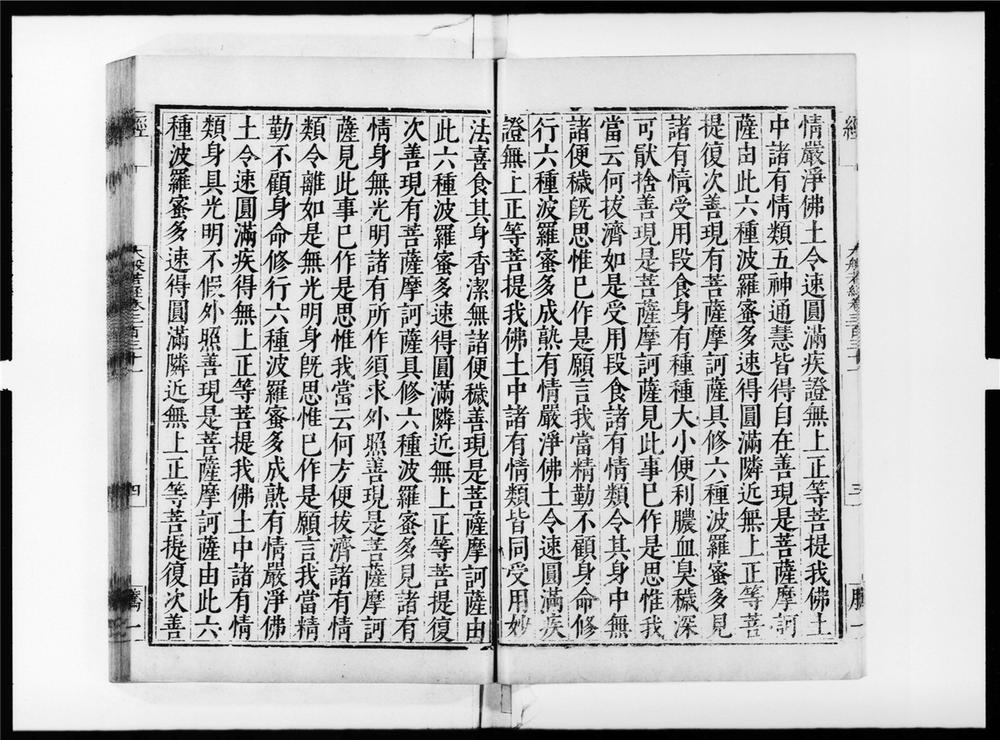 情嚴淨佛土令速圓滿疾證無上正等菩提我佛土
中諸有情類五神通慧皆得自在善現是菩薩摩訶
薩由此六種波羅蜜多速得圓滿隣近無上正等菩
提復次善現有菩薩摩訶薩具修六種波羅蜜多見
諸有情受用段食身有種種大小便利膿血臭穢深
可猒捨善現是菩薩摩訶薩見此事已作是思惟我
當云何拔濟如是受用段食諸有情類令其身中無
諸便穢旣思惟已作是願言我當精勤不顧身命修
行六種波羅蜜多成熟有情嚴淨佛土令速圓滿疾
證無上正等菩提我佛土中諸有情類皆同受用妙
法喜食其身香潔無諸便穢善現是菩薩摩訶薩由
此六種波羅蜜多速得圓滿隣近無上正等菩提復
次善現有菩薩摩訶薩具修六種波羅蜜多見諸有
情身無光明諸有所作須求外照善現是菩薩摩訶
薩見此事已作是思惟我當云何方便拔濟諸有情
類令離如是無光明身旣思惟已作是願言我當精
勤不顧身命修行六種波羅蜜多成熟有情嚴淨佛
土令速圓滿疾得無上正等菩提我佛土中諸有情
類身具光明不假外照善現是菩薩摩訶薩由此六
種波羅蜜多速得圓滿隣近無上正等菩提復次善
經 大般若經卷三百三十 四 騰一